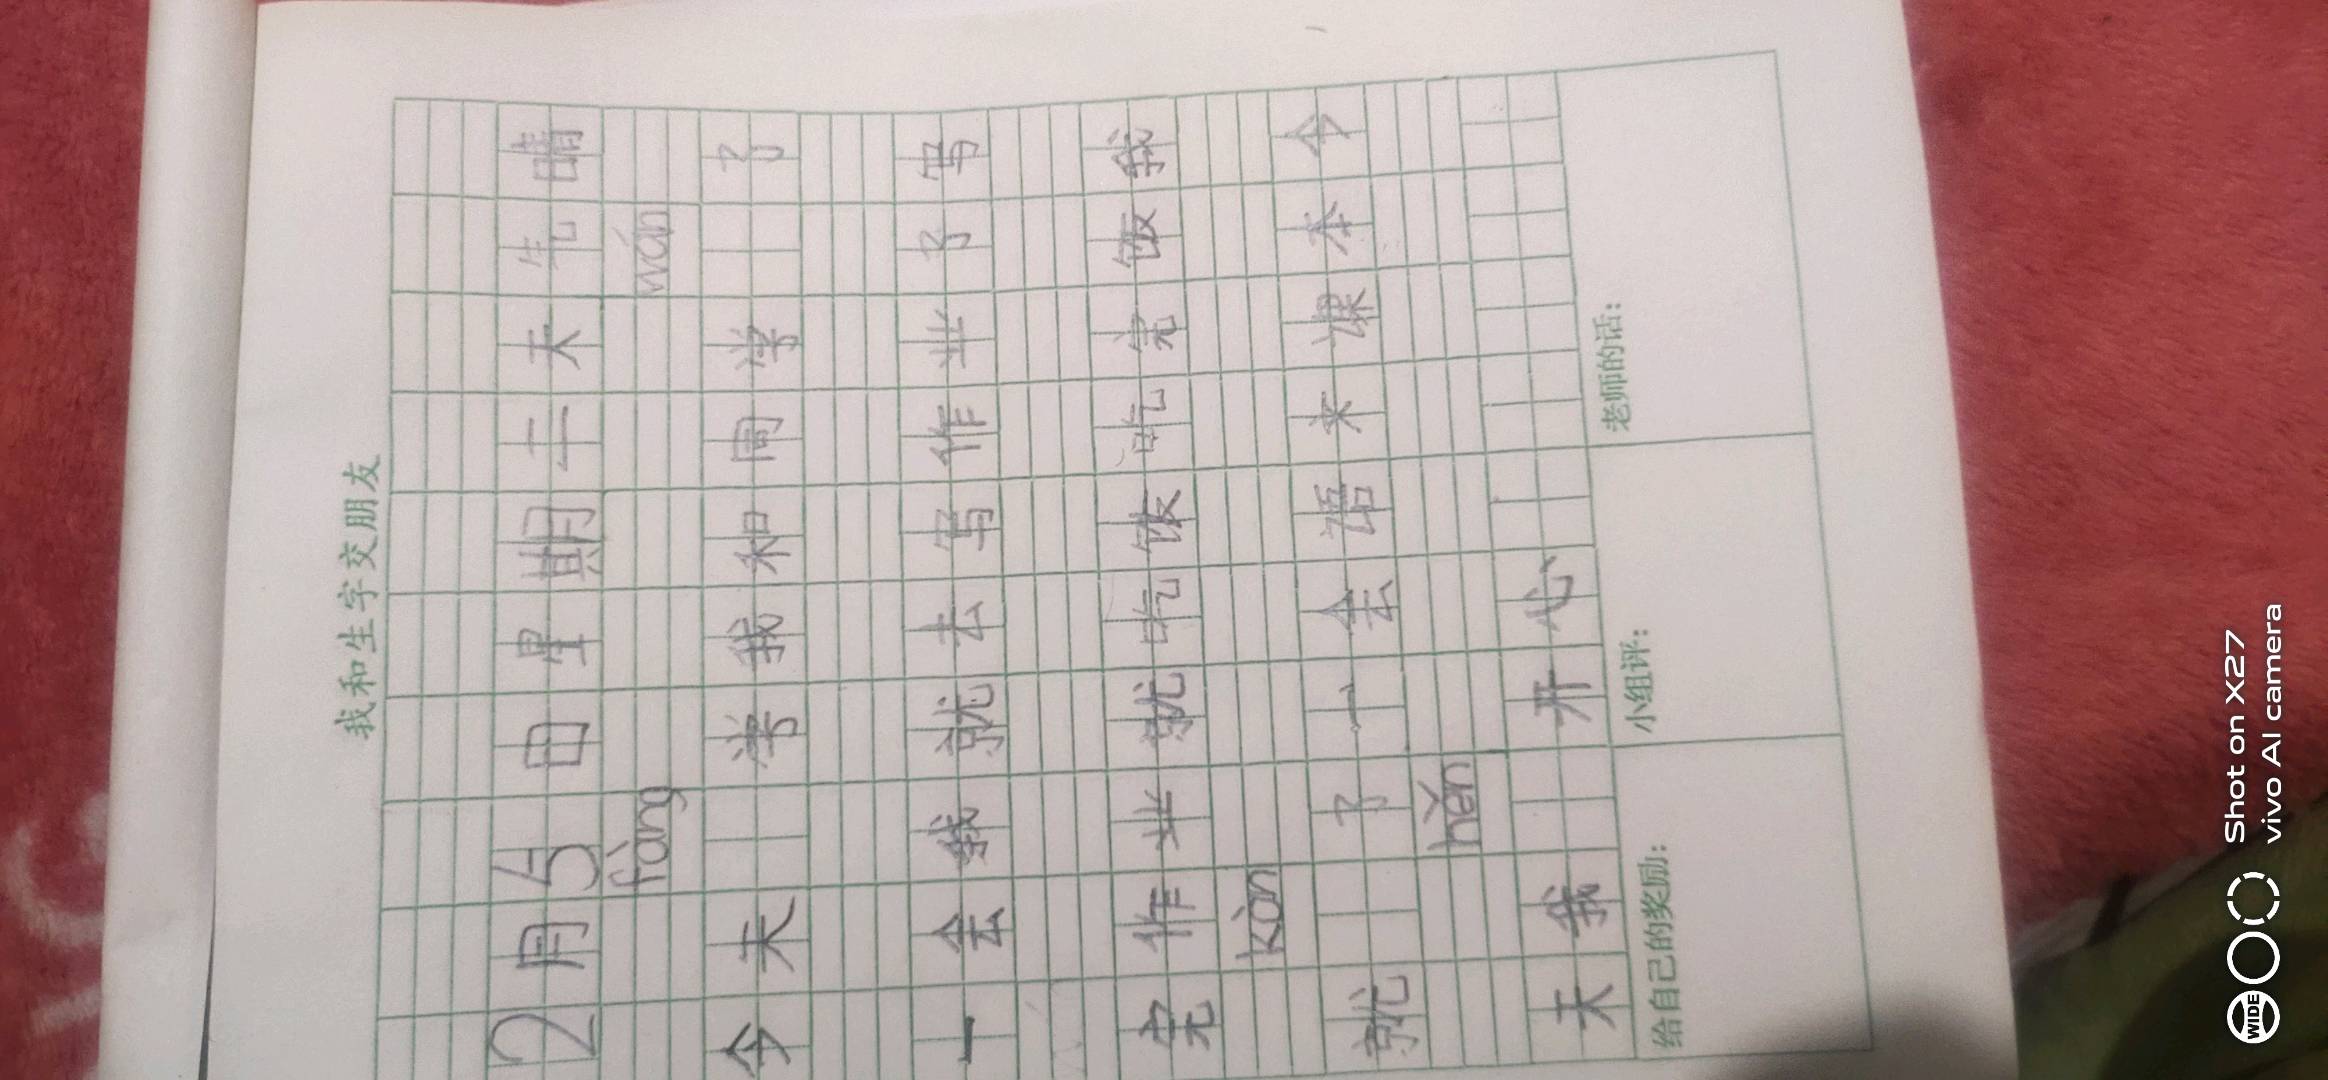 我和生字交朋友
2月5日星期二天气晴
fàng wán
今天 学我和同学 了
一会我就去写作业了写
完作业就吃饭吃完饭我
kàn
就 了一会语文课本今
hěn
天我 开心
给自己的奖励: 小组评: 老师的话:
Shot on X27
vivo AI camera
WIDE